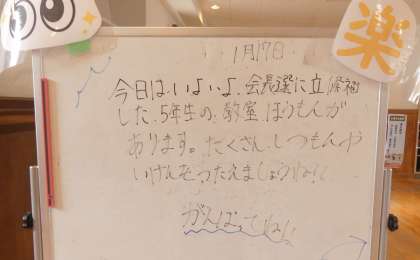 楽
1月17日
今日は、いよいよ、会長選に立候補
した、5年生の、教室ほうもんが
あります。たくさん、しつもんや
いけんをつたえましょうね!
がんばってね!!